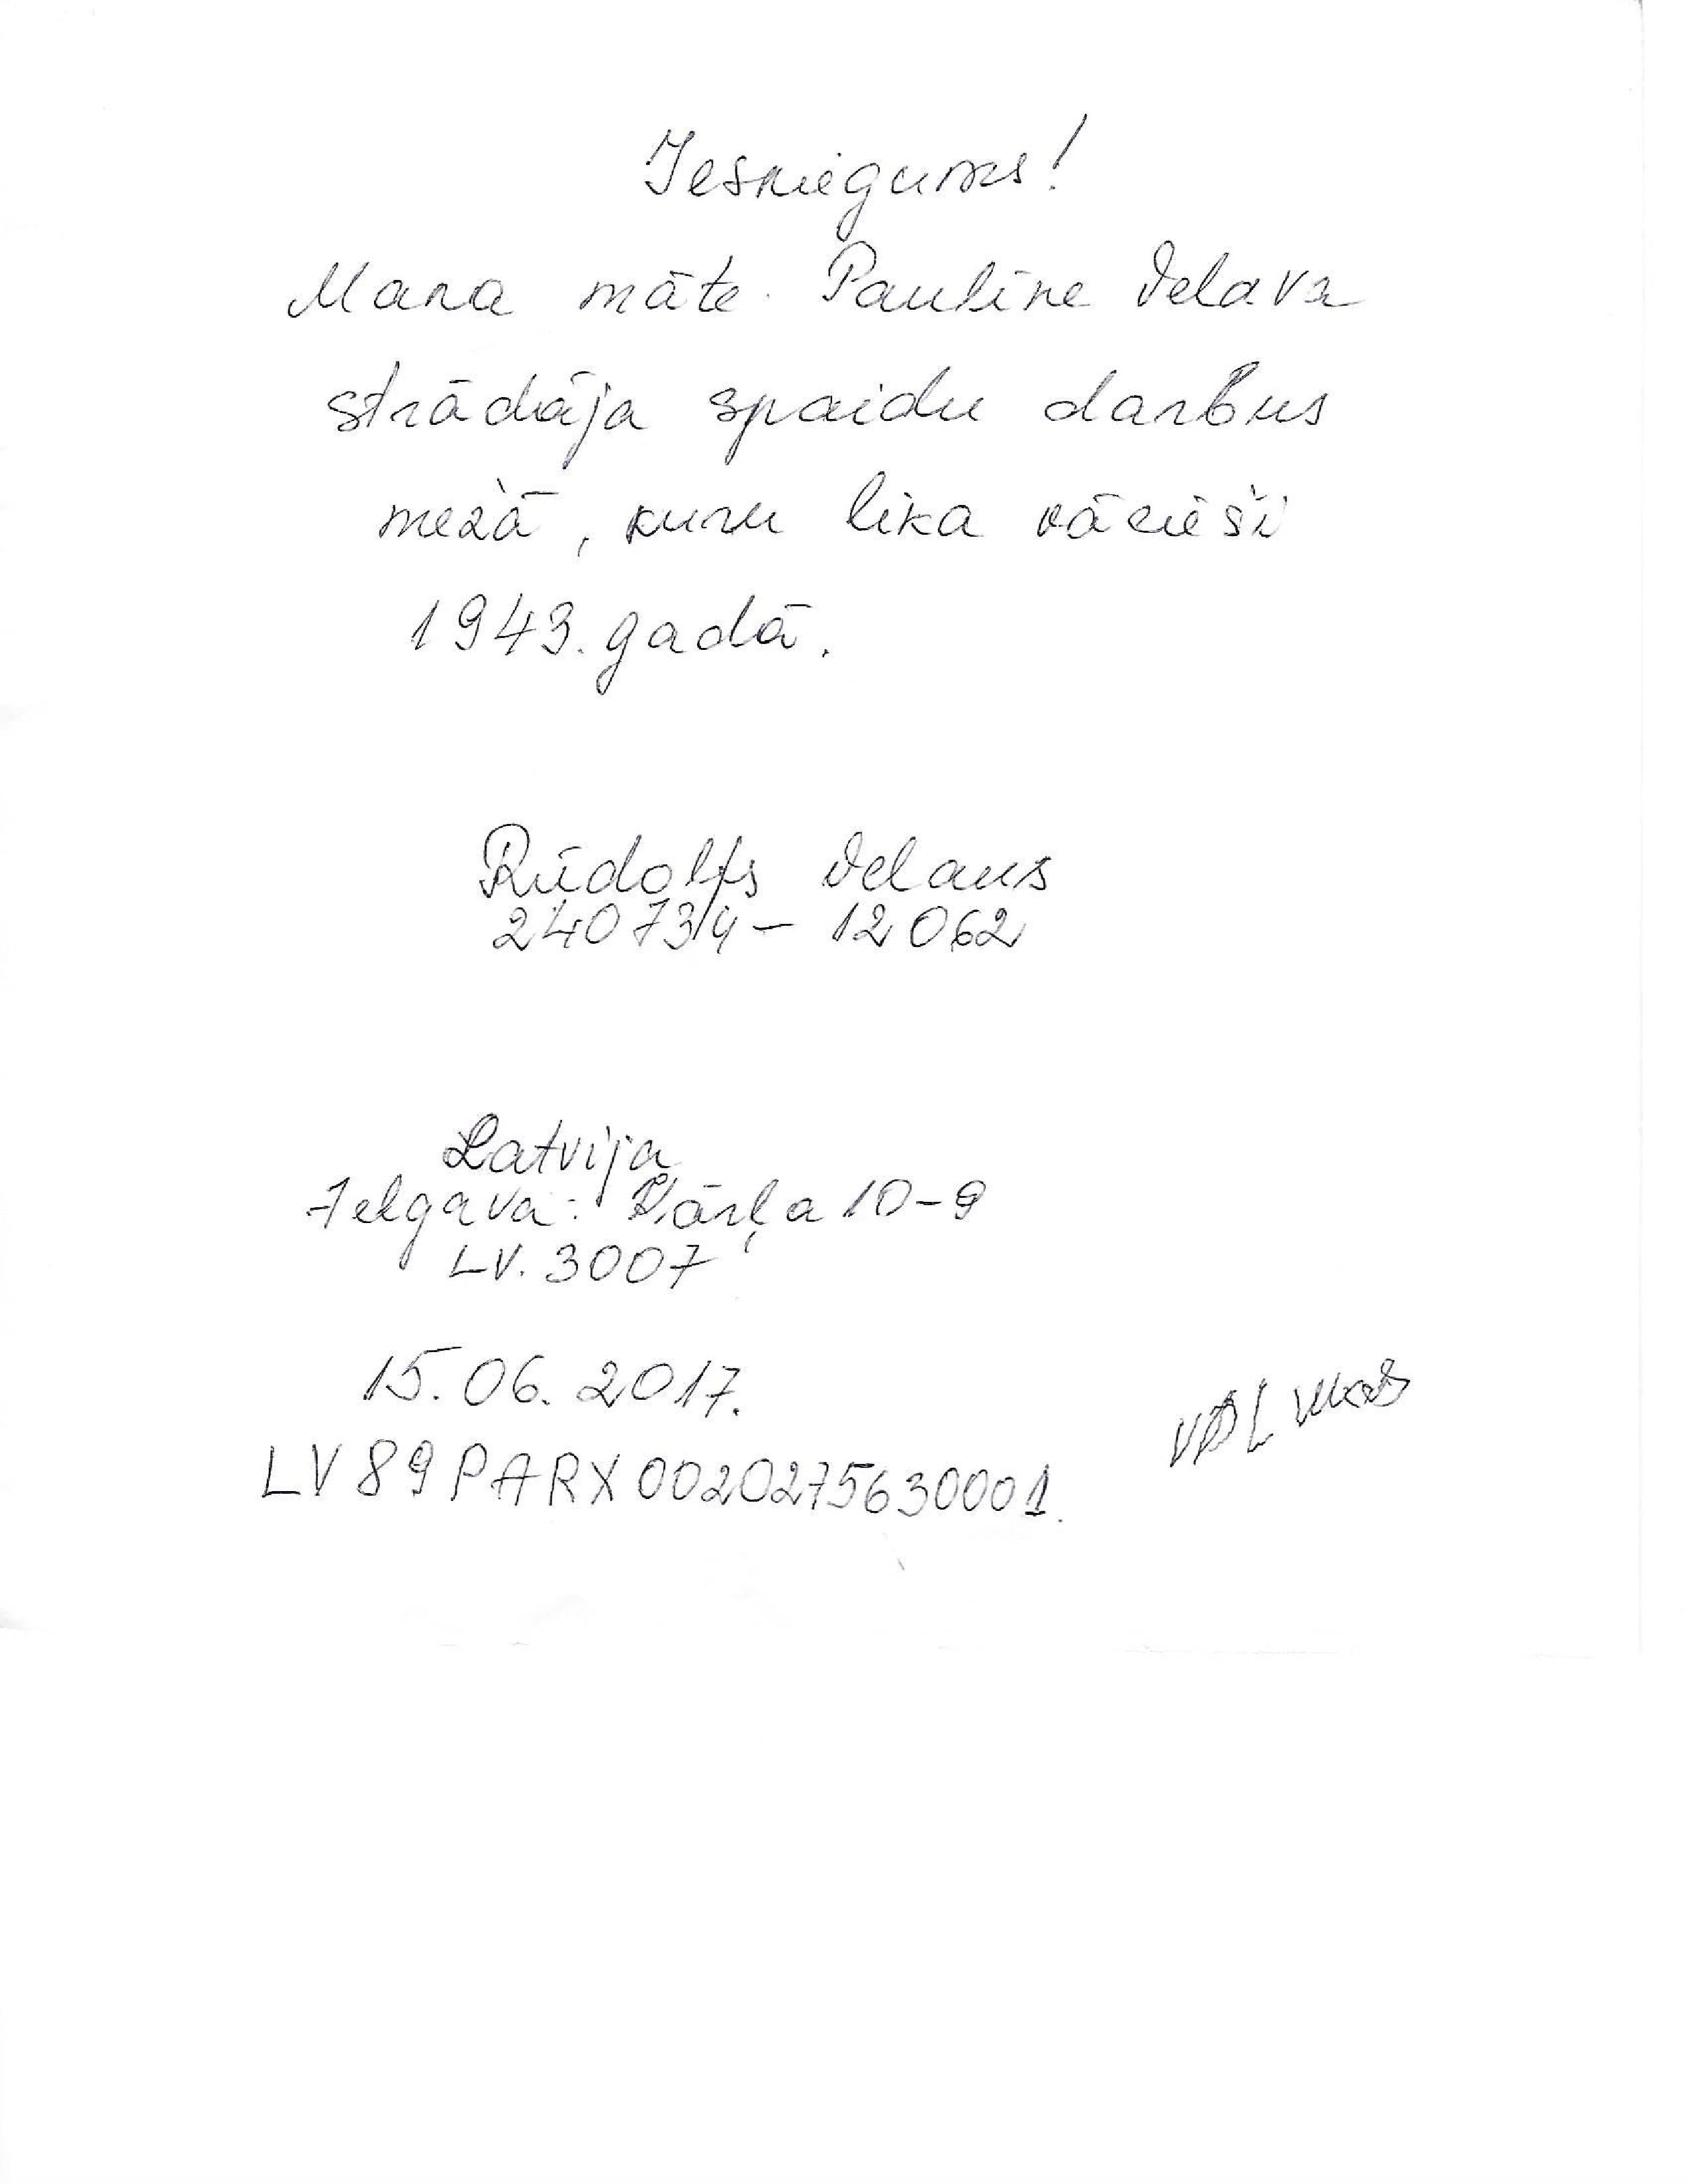 Iesniegums!
Mana māte Paulīne Velava
strādāja spaidu darbus
mežā, kuru lika vācieši
1943. gadā.
Rūdolfs Velaus
240734 - 12062
Latvija
Jelgava: Kārļa 10-9
LV. 3007
15.06.2017.
LV89PARX0020275630001.